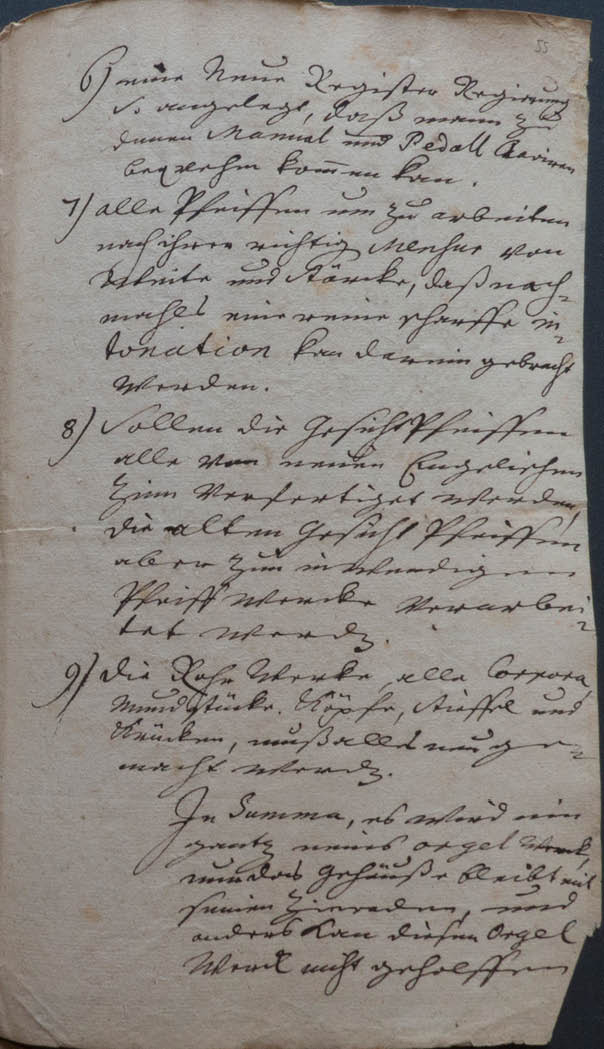 55
6) eine Neue Register Regierung
so angelegt, daß mann zu
denen Manual und Pedall Claviren
beqvehm kommen kan.
7) alle Pfeiffen um zu arbeiten
nach ihrer richtig Mensur von
Weite und Stärcke, daß nach-
mahls eine reine scharffe in-
tonation kan darinn gebracht
werden.
8) Sollen die Gesicht Pfeiffen
alle von neuen Engelischen
Zinn Verfertiget werden,
die alten Gesicht Pfeiffen
aber zum inwendigen
Pfeiff Wercke verarbei-
tet werdn.
9) die Rohr Wercke, alle Corpora,
Mundstücke, Köpfe, Stieffel und
Krücken, muß alles neu ge-
macht werdn.
In Summa, es wird ein
gantz neues orgel Werck,
nur das Gehäuße bleibt mit
seinen Zieraden, und
anders kan diesen Orgel
Werck nicht geholffen